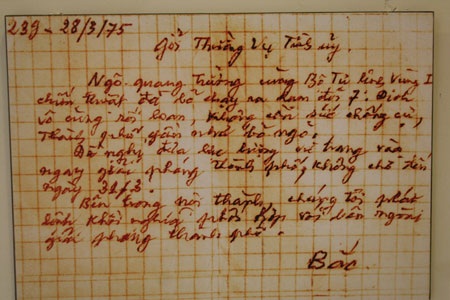 23g - 28/3/75
Gởi Thường Vụ Tỉnh ủy.
Ngô quang Trưởng cùng Bộ Tư lệnh vùng I
chiến thuật đã bỏ chạy ra hạm đội 7. Địch
vô cùng rối loạn, không còn sức chống cự,
Thành phố gần như bỏ ngỏ.
Đề nghị đưa lực lượng vũ trang vào
ngay giải phóng thành phố, không chờ đến
ngày
Bên trong nội thành, chúng tôi phát
lệnh khởi nghĩa phối hợp với bên ngoài
giải phóng thành phố.
Bắc